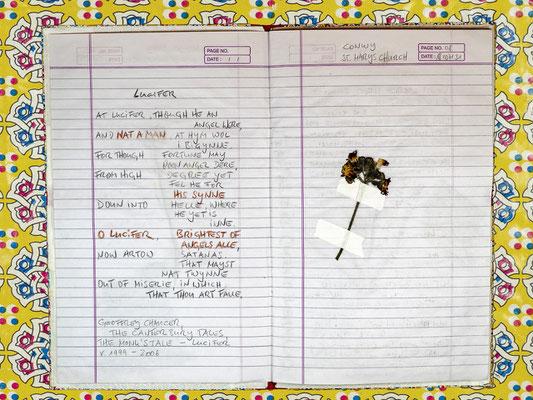 PAGE NO.
DATE: / /
LUCIFER
AT LUCIFER, THOUGH HE AN
ANGEL WERE,
AND NAT A MAN, AT HYM WOL
I BIGYNNE.
FOR THOUGH FORTUNE MAY
NOON ANGEL DERE,
FROM HIGH DEGREE YET
FEL HE FOR
HIS SYNNE
DOWN INTO HELLE, WHERE
HE YET IS
INNE.
O LUCIFER, BRIGHTEST OF
ANGELS ALLE,
NOW ARTOW SATANAS
THAT MAYST
NAT TWYNNE
OUT OF MISERIE, IN WHICH
THAT THOU ART FALLE,
GEOFFREY CHAUCER
THE CANTERBURY TALES
THE MONK'S TALE – LUCIFER
V. 1999 – 2006
CONWY
ST. MARYS CHURCH
PAGE NO.
DATE: